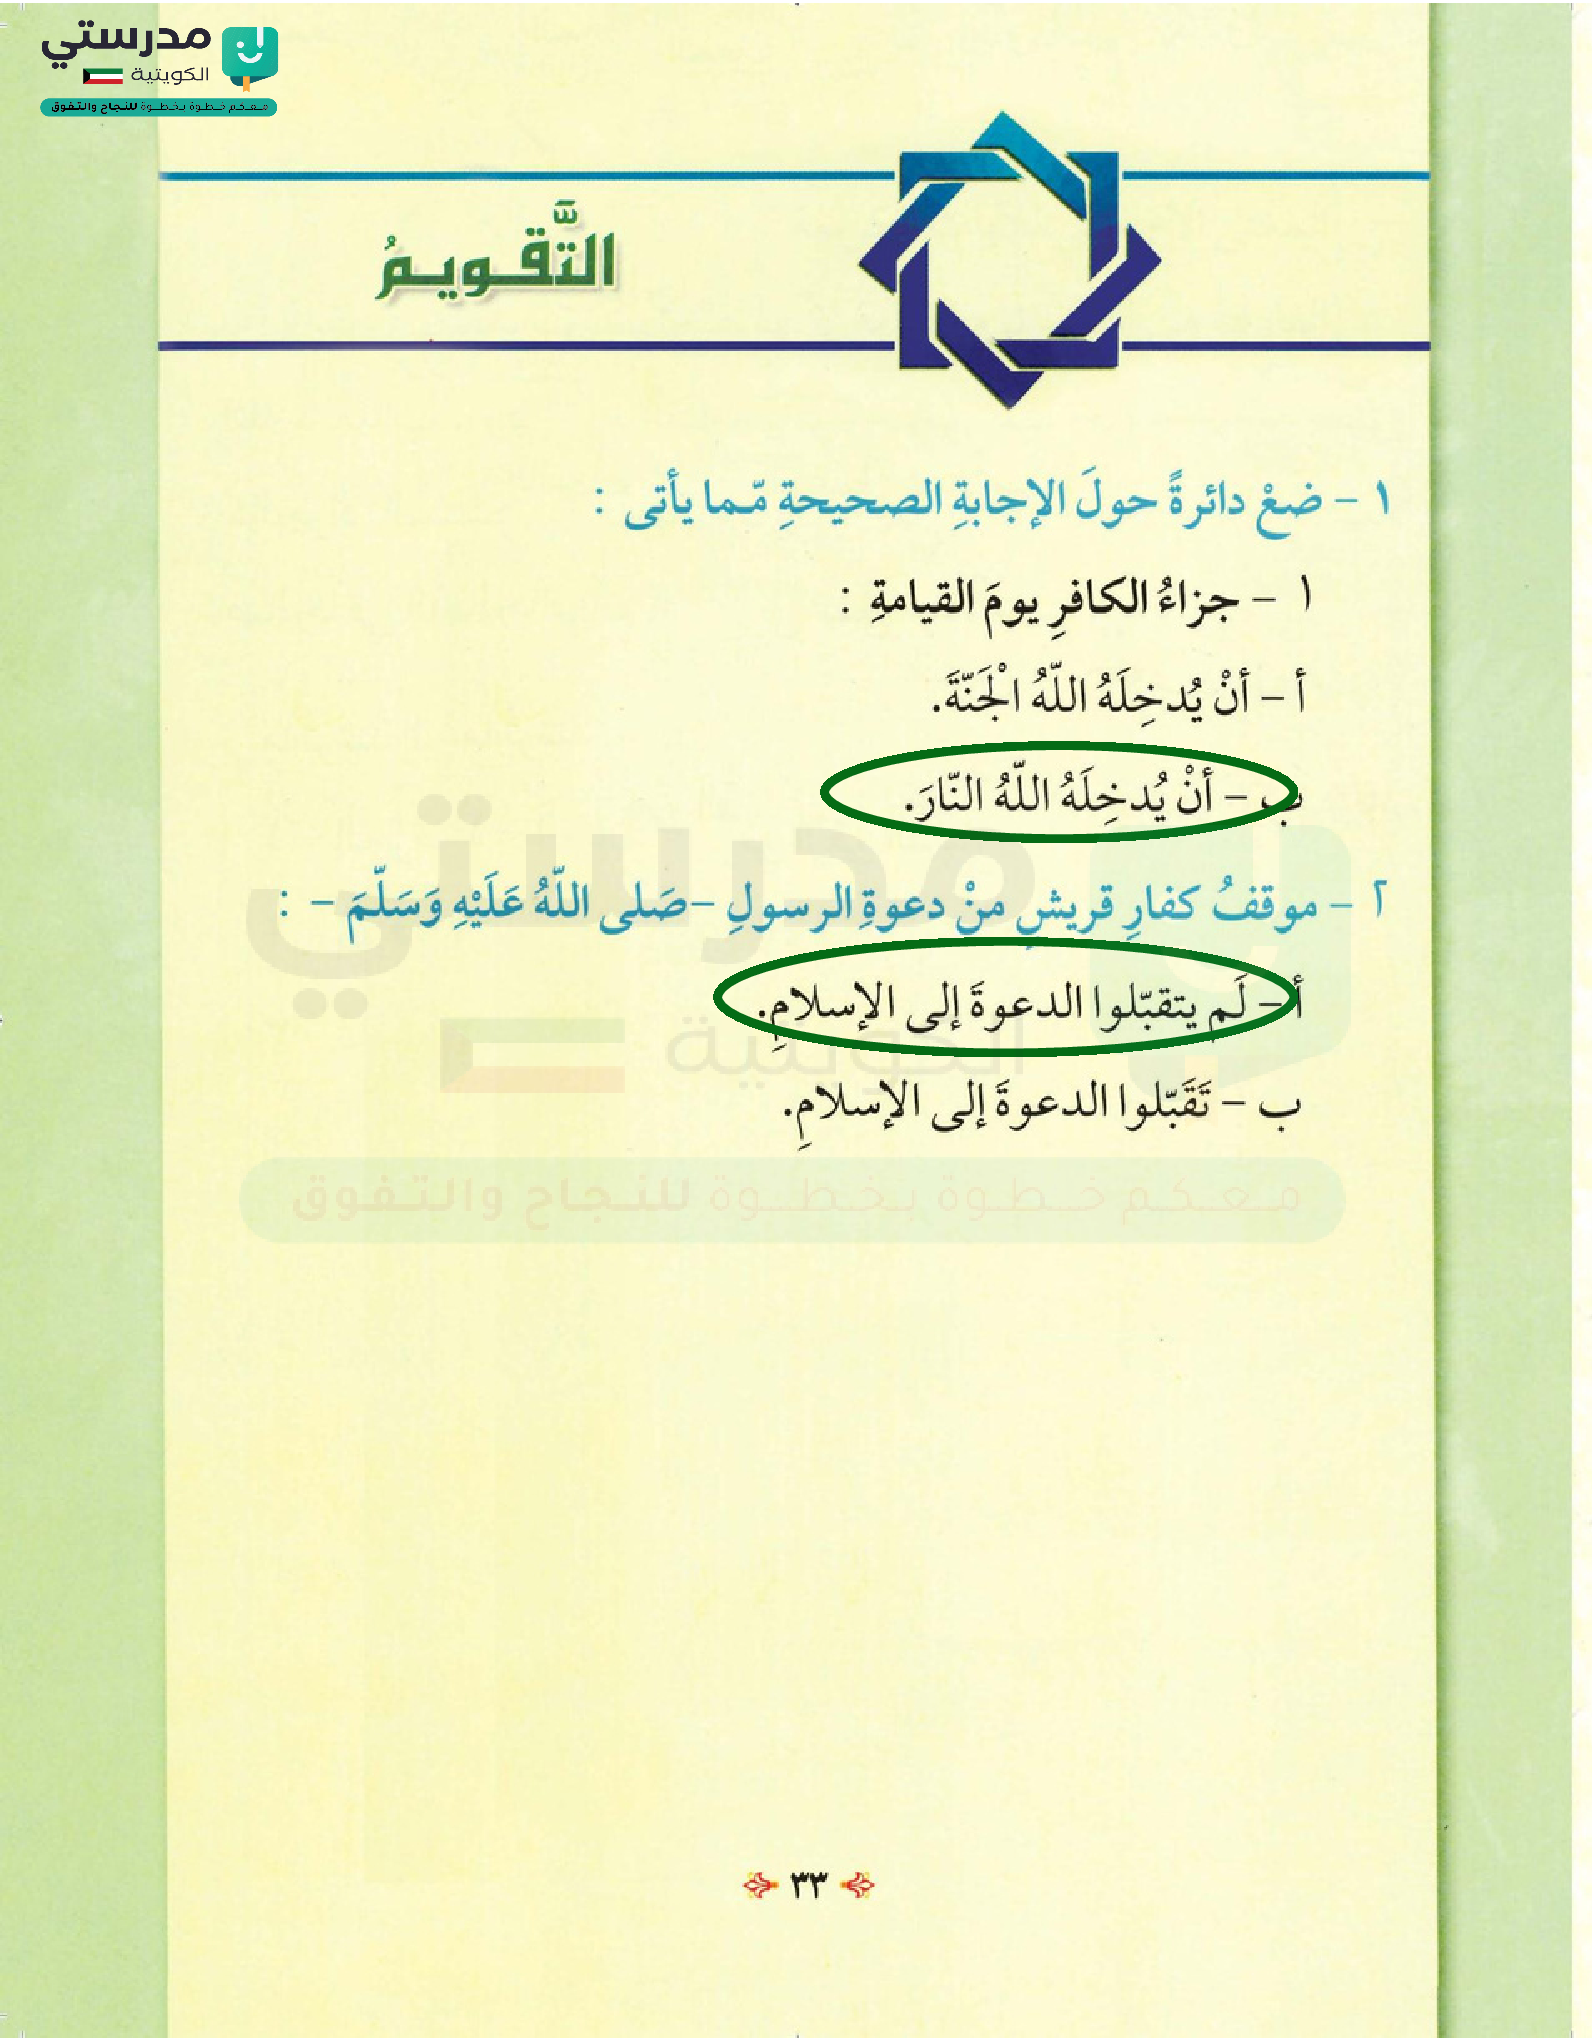 مدرستي
الكويتية
معكم خطوة بخطوة للنجاح والتفوق
التَّقويمُ
١ - ضعْ دائرةً حولَ الإجابةِ الصحيحةِ مّما يأتى :
١ - جزاءُ الكافرِ يومَ القيامةِ :
أ - أنْ يُدخِلَهُ اللّهُ الْجَنّةَ.
ب - أنْ يُدخِلَهُ اللّهُ النّارَ.
٢ - موقفُ كفارِ قريشٍ منْ دعوةِ الرسولِ -صَلى اللّهُ عَلَيْهِ وَسَلّمَ - :
أ - لَم يتقبّلوا الدعوةَ إلى الإسلامِ.
ب - تَقَبّلوا الدعوةَ إلى الإسلامِ.
مدرستي
الكويتية
معكم خطوة بخطوة للنجاح والتفوق
٣٣